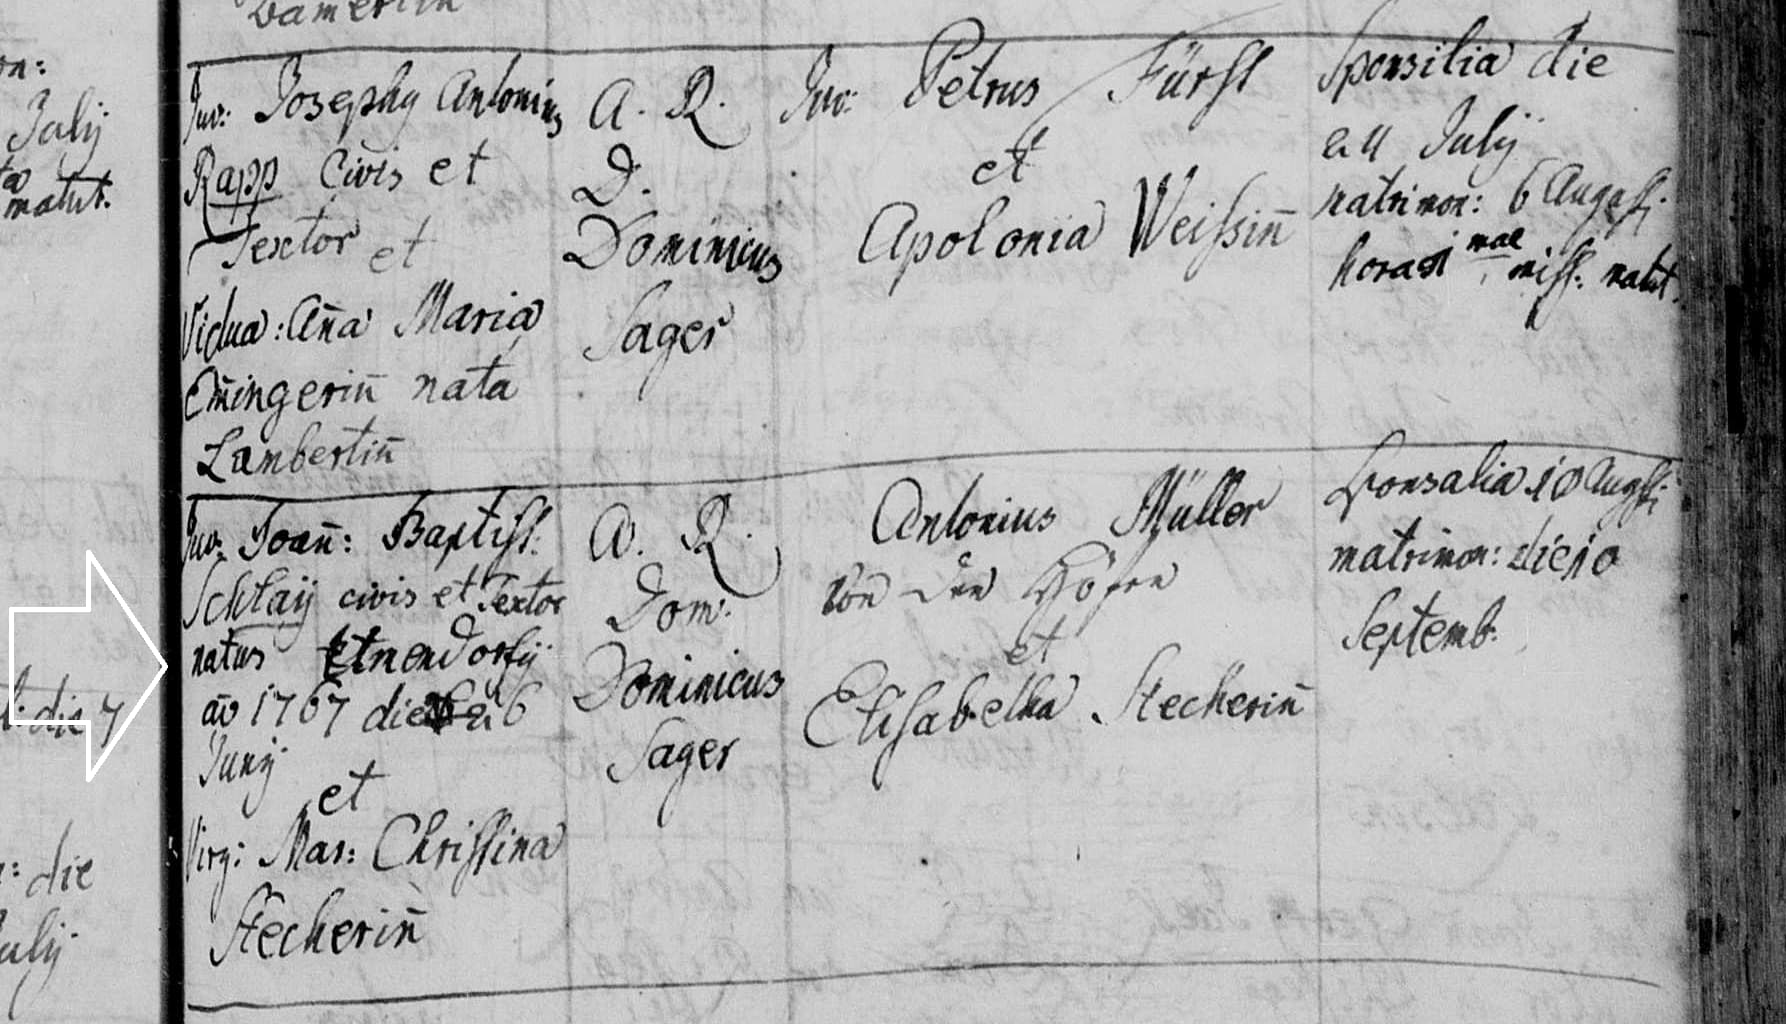 on:
July
matut.
Juv: Josephus Antonius
Rapp civis et
Textor et
Vidua: Aña Maria
Em̄ingerin̄ nata
Lambertin̄
A. R.
D.
Dominicus
Sager
Juv: Petrus Fürst
et
Apolonia Weissin̄
Sponsilia die
July
matrimon: 6 Augusti
hora miss. matut.
Juv: Joan̄: Baptist:
Schlaÿ civis et Textor
natus Etnendorfÿ
ao 1767 die 6
Junÿ
et
Virg: Mar: Christina
Stecherin̄
A. R.
Dom:
Dominicus
Sager
Antonius Müller
von den Höfen
et
Elisabetha Stecherin̄
Sponsalia 10 Augusti
matrimon: die 10
Septemb:
die 7
: die
July